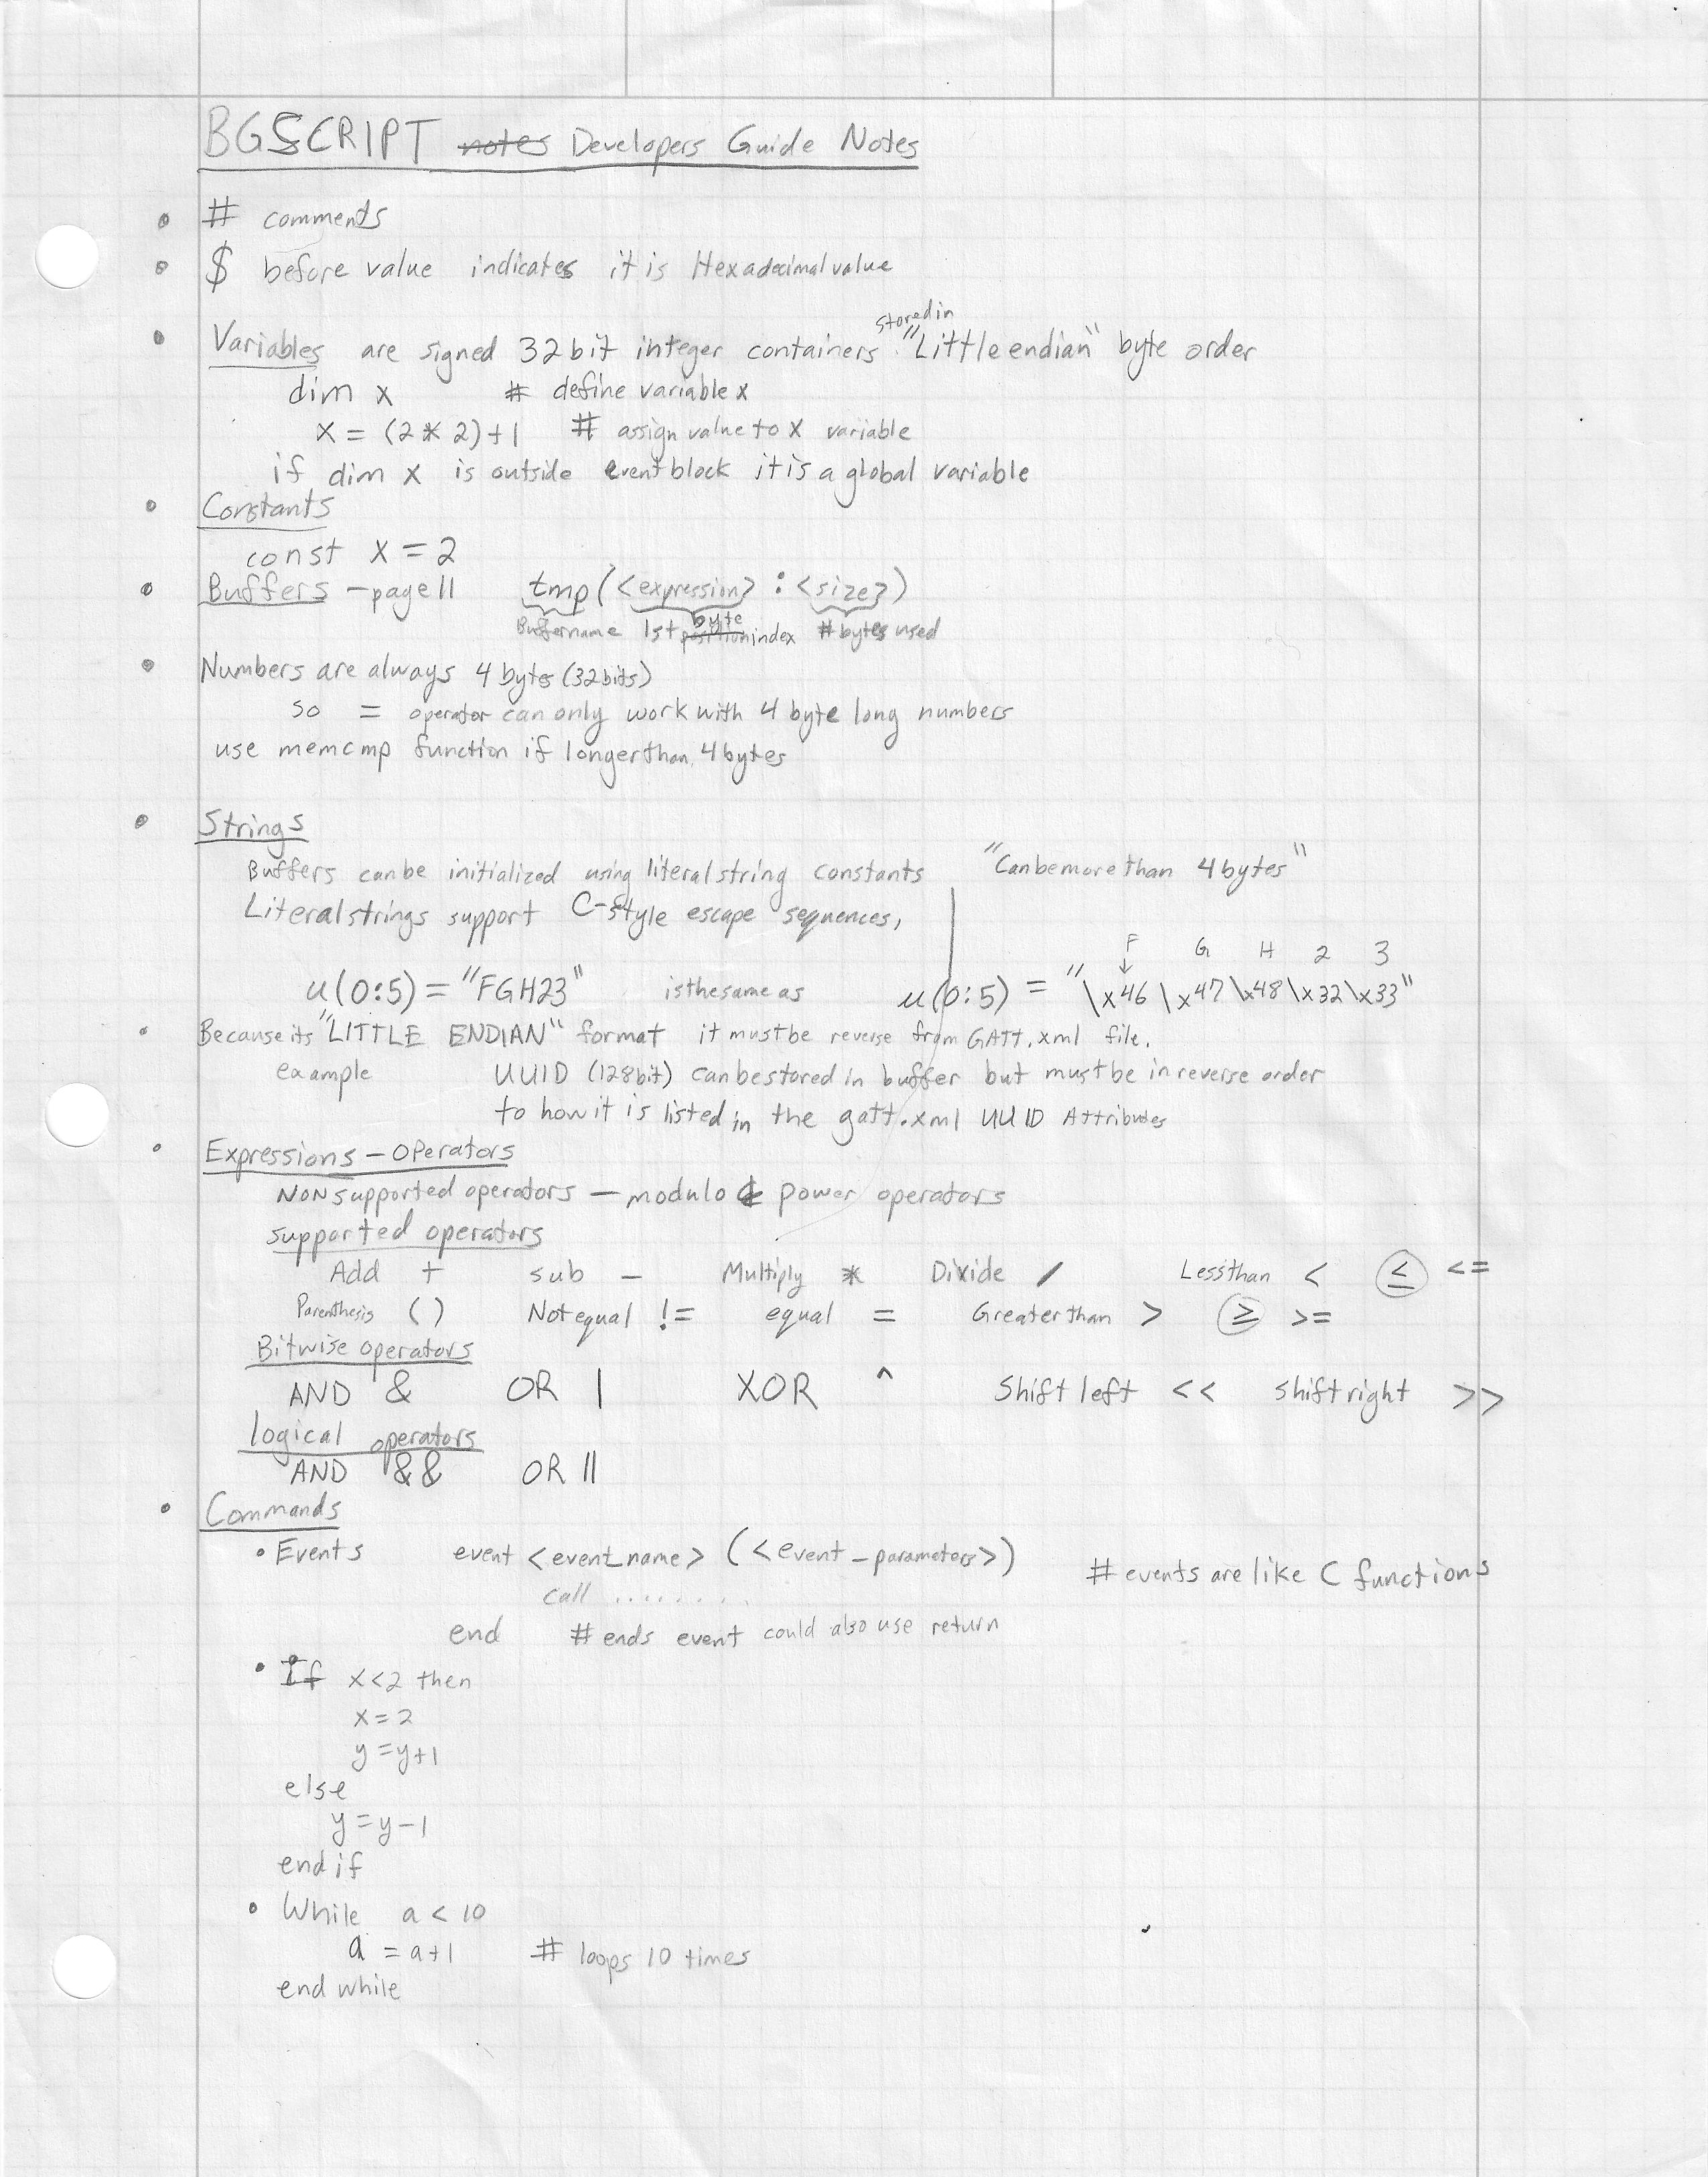 BGSCRIPT notes Developers Guide Notes
# comments
$ before value indicates it is Hexadecimal value
stored in
Variables are signed 32 bit integer containers "Little endian" byte order
dim x # define variable x
x = (2 * 2) + 1 # assign value to x variable
if dim x is outside event block it is a global variable
Constants
const x = 2
Buffers - page 11 tmp (<expression> : <size>)
byte
Buffername 1st position index # bytes used
Numbers are always 4 bytes (32 bits)
so = operator can only work with 4 byte long numbers
use memcmp function if longer than 4 bytes
Strings
Buffers can be initialized using literal string constants "Can be more than 4 bytes"
Literal strings support C-style escape sequences,
F G H 2 3
u(0:5) = "FGH23" is the same as u(0:5) = "\x46\x47\x48\x32\x33"
Because its "LITTLE ENDIAN" format it must be reverse from GATT.xml file.
example UUID (128 bit) can be stored in buffer but must be in reverse order
to how it is listed in the gatt.xml UUID Attributes
Expressions - Operators
NON supported operators - modulo & power operators
supported operators
Add + sub - Multiply * Divide / Less than < ≤ <=
Parenthesis ( ) Not equal != equal = Greater than > ≥ >=
Bitwise operators
AND & OR | XOR ^ Shift left << shift right >>
logical operators
AND && OR ||
Commands
Events event <event_name> (<event_parameters>)
# events are like C functions
call ........
end # ends event could also use return
If x<2 then
x=2
y=y+1
else
y=y-1
end if
While a < 10
a = a+1 # loops 10 times
end while